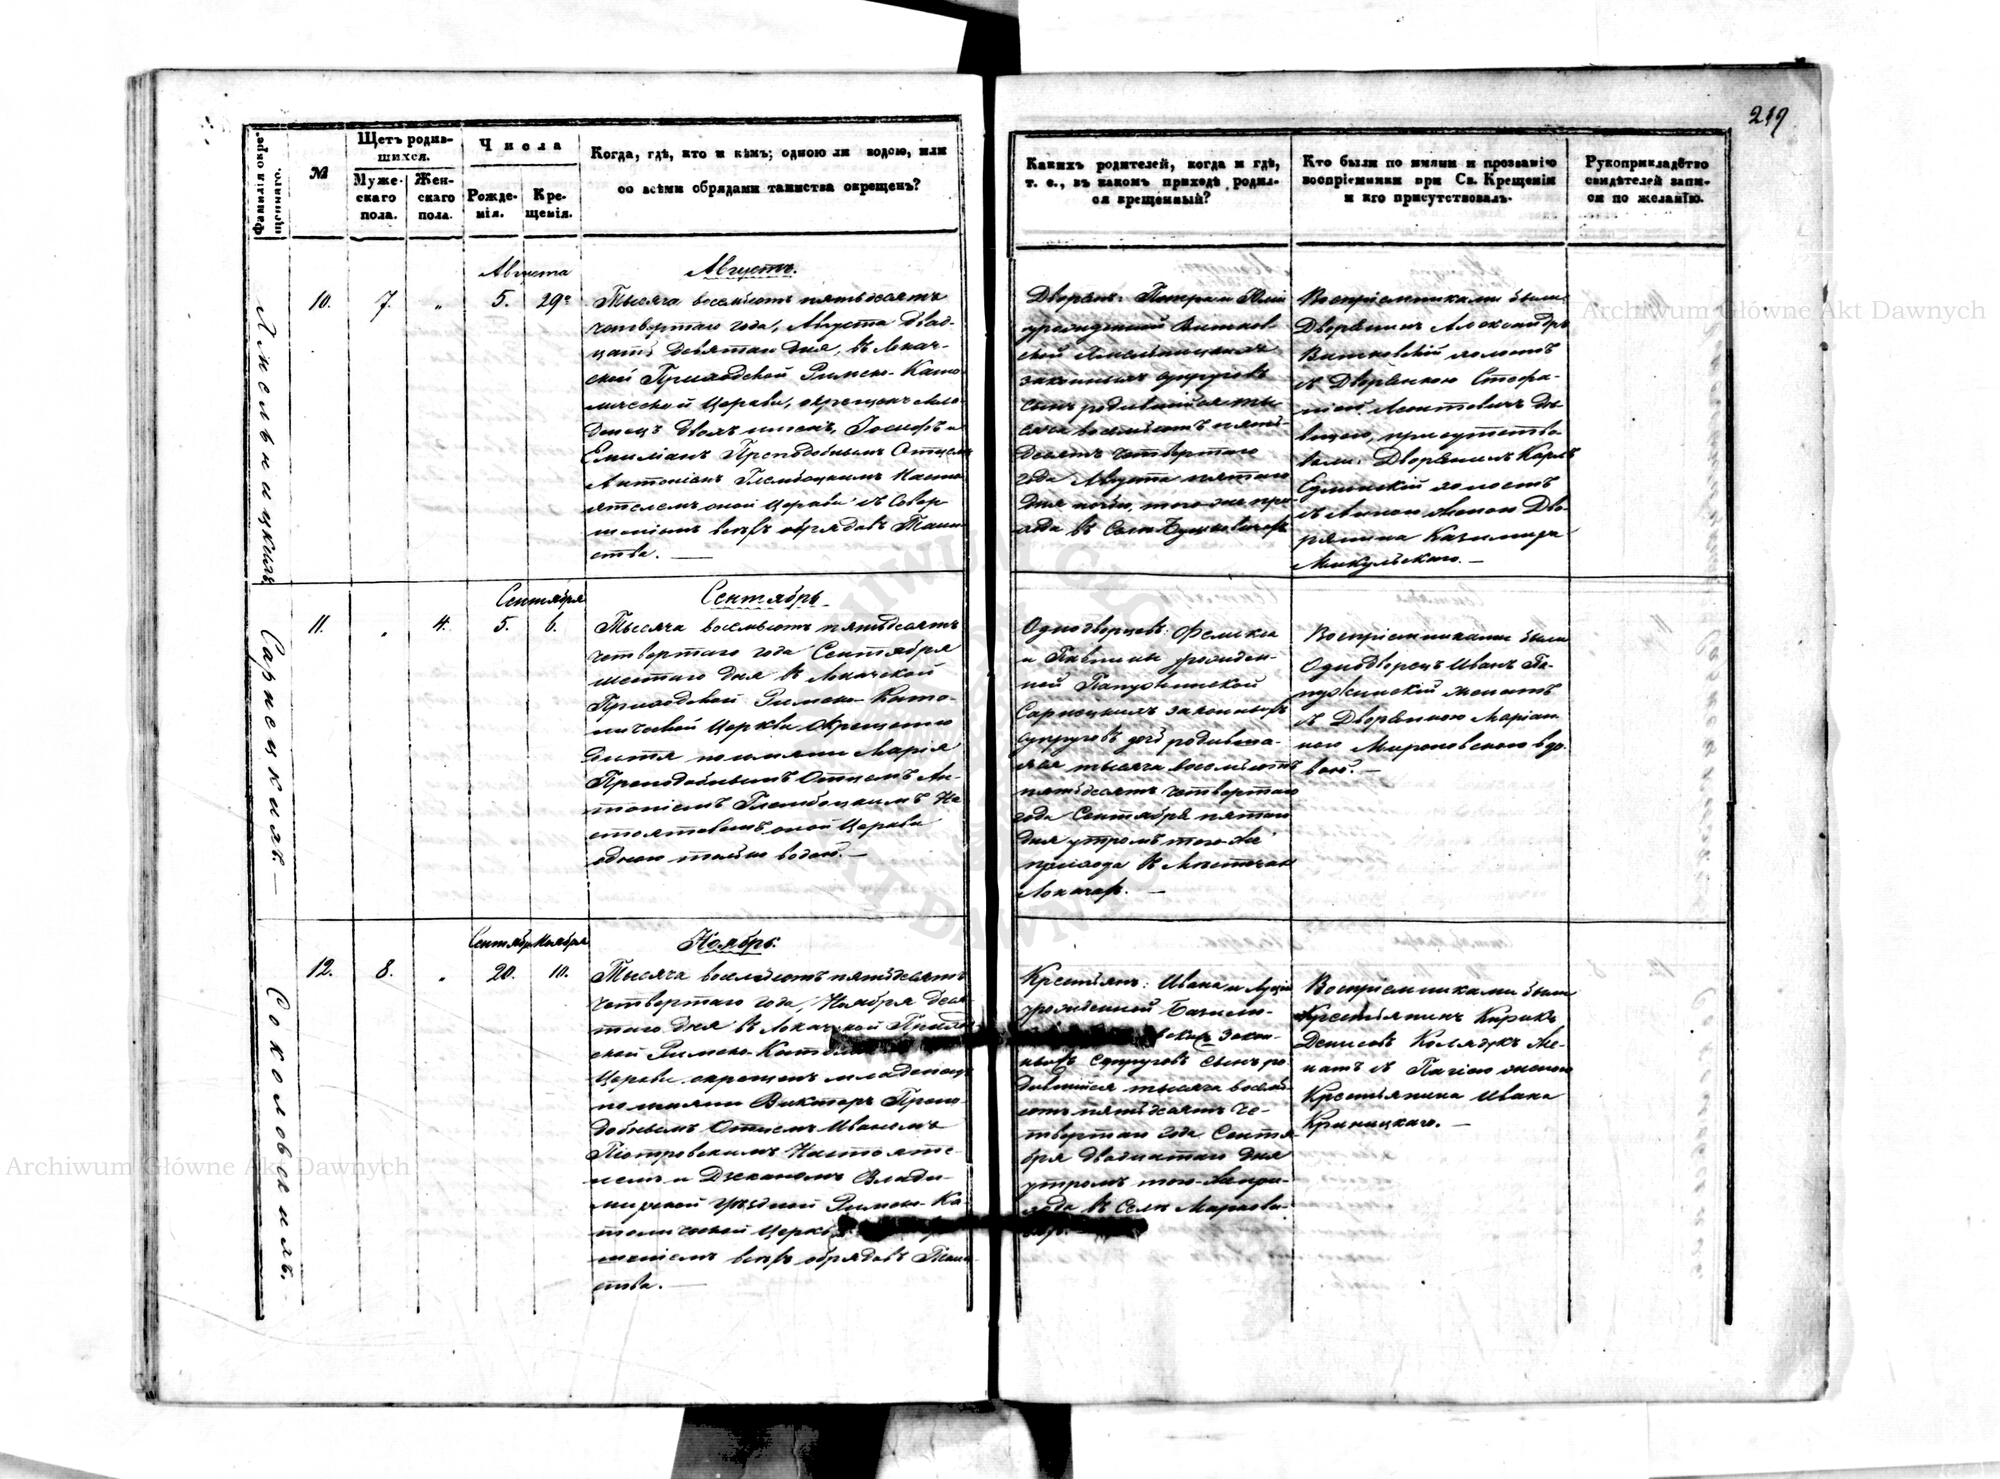 219
Фамилія окре-
щиваннаго.
№
Щетъ родив-
шихся.
Муже-
скаго
пола.
Жен-
скаго
пола.
Числа
Рожде-
нія.
Кре-
щенія.
Когда, гдѣ, кто и кѣмъ; одною ли водою, или
со всѣми обрядами таинства окрещенъ?
Каихъ родителей, когда и гдѣ,
т. е., въ какомъ приходѣ родил-
ся крещенный?
Кто были по имяни и прозванію
воспріемники при Св. Крещеніи
и кто присутствовалъ.
Рукоприкладство
свидѣтелей запи-
си по желанію.
Хмельницкихъ
Августа
10. 7. „ 5. 29е
Августъ.
Тысяча восемьсотъ пятьдесятъ
четвертаго года, Августа двад-
цать девятаго дня, въ Локач-
ской Приходской Римско-Като
лической Церкви, окрещенъ мла
денецъ двоъ именъ, Іосифъ и
Емиліанъ Преподобнымъ Отцемъ
Антоніемъ Глембоцкимъ Насто
ятелемъ оной Церкви съ Совер
шеніемъ всѣхъ обрядовъ Таин
ства. —
Дворянъ: Петра и Юліи
урожденной Витков-
ской Хмельницкихъ
законныхъ супруговъ
сынъ родившійся ты
сяча восемьсотъ пять-
десятъ четвертаго
года Августа пятаго
дня ночи, того же при-
хода въ Селѣ
Воспріемниками были:
Дворянинъ Александръ
Витковскій холостъ
съ Дворянкою Стефа-
ніею Леонтовичъ дѣ
вицею, присутство
вали: Дворянинъ Карлъ
холостъ
съ Анною женою Дво-
рянина Казимира
Микульскаго. —
Сарнецкихъ. —
Сентября
11. „ 4. 5. 6.
Сентябрь
Тысяча восемьсотъ пятьдесятъ
четвертаго года Сентября
шестаго дня въ Локачской
Приходской Римско-Като-
лической Церкви окрещено
дитя по имяни Марія
Преподобнымъ Отцемъ Ан-
тоніемъ Глембоцкимъ На
стоятелемъ оной Церкви
одною только водою. —
Однодворцевъ: Феликса
и Павлины урожден-
ной Папужинской
Сарнецкихъ законныхъ
супруговъ дочь родивша-
яся тысяча восемьсотъ
пятьдесятъ четвертаго
года Сентября пятаго
дня утромъ того-же
прихода въ Мѣстечкѣ
Локачахъ. —
Воспріемниками были
Однодворецъ Иванъ Па-
пужинскій женатъ
съ Дворянкою Маріан
ною Мироновскою вдо-
вою. —
Соколовскихъ.
Сентября Ноября
12. 8. „ 20. 10.
Ноябрь.
Тысяча восемьсотъ пятьдесятъ
четвертаго года, Ноября деся
таго дня въ Локачской Приход
ской Римско-
Церкви окрещенъ младенецъ
по имяни Викторъ Препо-
добнымъ Отцемъ Иваномъ
Піотровскимъ Настояте-
лемъ и Деканомъ Влади-
мирской Уѣздной Римско-Ка
толической
шеніемъ всѣхъ обрядовъ Таин
ства. —
Крестьянъ: Ивана и Луціи
урожденной
закон-
ныхъ супруговъ сынъ ро-
дившійся тысяча восемь
сотъ пятьдесятъ че-
твертаго года Сентя-
бря двадцатаго дня
утромъ того-же при-
хода въ Селѣ Марковы-
Воспріемниками были
Крестьянинъ Кирикъ
Денисовъ Колядукъ же-
натъ съ женою
Крестьянина Ивана
Криницкаго. —
Archiwum Główne Akt Dawnych
Archiwum Główne Akt Dawnych